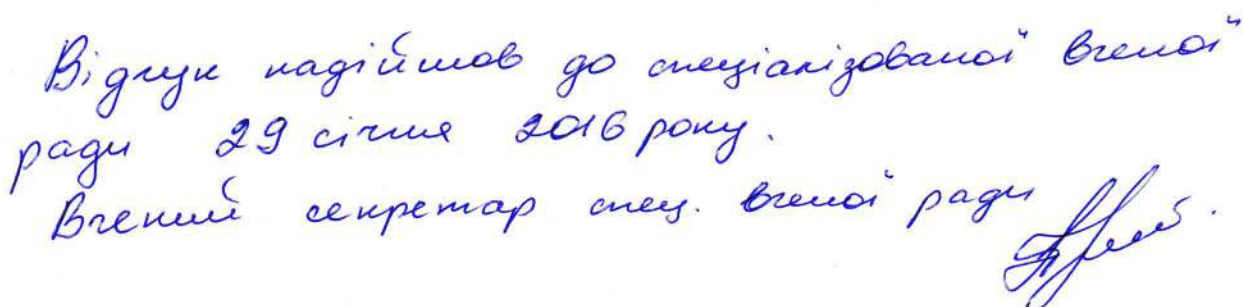 Відгук надійшов до спеціалізованої вченої
ради 29 січня 2016 року.
Вчений секретар спец. вченої ради